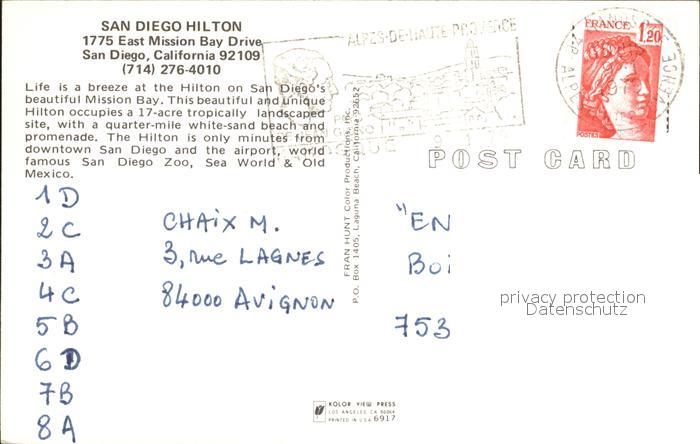 SAN DIEGO HILTON
1775 East Mission Bay Drive
San Diego, California 92109
(714) 276-4010
Life is a breeze at the Hilton on San Diego's
beautiful Mission Bay. This beautiful and unique
Hilton occupies a 17-acre tropically landscaped
site, with a quarter-mile white-sand beach and
promenade. The Hilton is only minutes from
downtown San Diego and the airport, world
famous San Diego Zoo, Sea World & Old
Mexico.
ALPES-DE-HAUTE PROVENCE
FRANCE 1,20
POSTES
POST CARD
FRAN HUNT Color Productions, Inc.
P.O. Box 1405, Laguna Beach, California 92652
1D
2C
3A
4C
5B
6D
7B
8A
CHAIX M.
3, rue LAGNES
84000 AVIGNON
"EN
Boi
753
privacy protection
Datenschutz
KOLOR VIEW PRESS
LOS ANGELES, CA 90064
PRINTED IN U.S.A. 6917